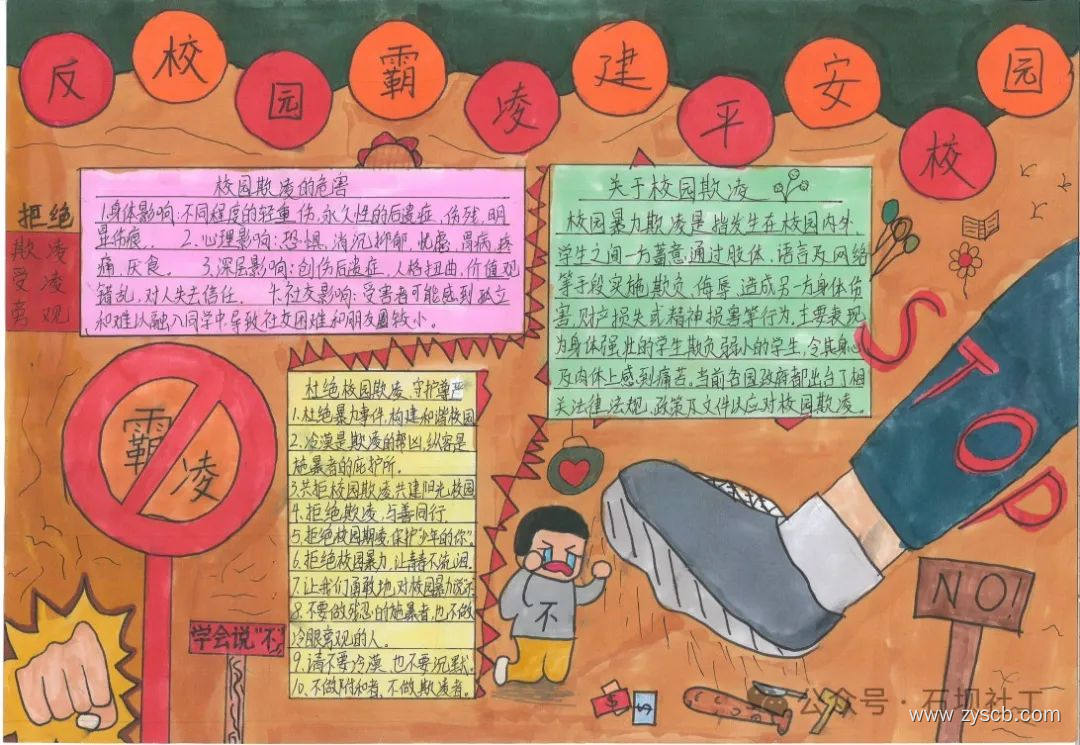 反校园霸凌建平安校园
拒绝
欺凌
受凌
旁观
校园欺凌的危害
1.身体影响:不同程度的轻重伤,永久性的后遗症、伤残,明
显伤痕。 2.心理影响:恐惧、消沉抑郁、忧虑、胃病、疼
痛、厌食。 3.深层影响:创伤后遗症、人格扭曲、价值观
错乱、对人失去信任。 4.社交影响:受害者可能感到孤立
和难以融入同学中,导致社交困难和朋友圈较小。
关于校园欺凌
校园暴力欺凌是指发生在校园内外、
学生之间一方蓄意通过肢体、语言及网络
等手段实施欺负、侮辱,造成另一方身体伤
害、财产损失或精神损害等行为,主要表现
为身体强壮的学生欺负弱小的学生,令其身心
及肉体上感到痛苦。当前各国政府都出台了相
关法律、法规、政策及文件以应对校园欺凌。
霸凌
杜绝校园欺凌 守护尊严
1.杜绝暴力事件,构建和谐校园
2.冷漠是欺凌的帮凶,纵容是
施暴者的庇护所。
3.共拒校园欺凌,共建阳光校园
4.拒绝欺凌,与善同行.
5.拒绝校园期凌,保护"少年的你".
6.拒绝校园暴力,让青春不流泪.
7.让我们勇敢地,对校园暴力说不
8.不要做残忍的施暴者,也不做
冷眼旁观的人.
9.请不要冷漠,也不要沉默.
10.不做附和者,不做欺凌者.
STOP
学会说"不"
不
NO!
公众号·石坝社工
www.zyscb.com